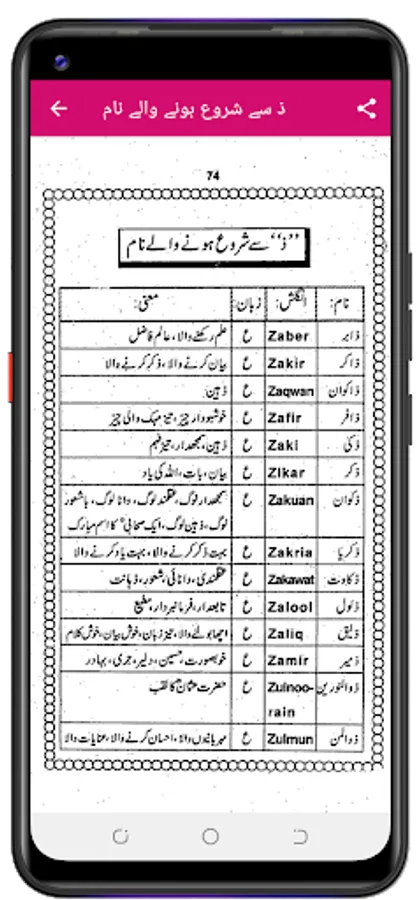 ذ سے شروع ہونے والے نام
74
”ذ“ سے شروع ہونے والے نام
نام: انگلش: زبان: معنی:
ذابر Zaber ع علم رکھنے والا، عالم فاضل
ذاکر Zakir ع بیان کرنے والا، ذکر کرنے والا
ذاکوان Zaqwan ع ذہین
ذافر Zafir ع خوشبودار چیز، تیز مہک والی چیز
ذکی Zaki ع ذہین، سمجھدار، تیز فہم
ذکر Zikar ع بیان، بات، اللہ کی یاد
ذکوان Zakuan ع سمجھدار لوگ، عقلمند لوگ، دانا لوگ، باشعور
لوگ، ذہین لوگ، ایک صحابیؓ کا اسم مبارک
ذکریا Zakria ع بہت ذکر کرنے والا، بہت یاد کرنے والا
ذکاوت Zakawat ع عقلمندی، دانائی، شعور، ذہانت
ذلول Zalool ع تابعدار، فرمانبردار، مطیع
ذلیق Zaliq ع اچھا بولنے والا، تیز زبان، خوش بیان، خوش کلام
ذمیر Zamir ع خوبصورت، حسین، دلیر، جری، بہادر
ذوالنورین Zulnoo- ع حضرت عثمانؓ کا لقب
rain
ذوالمن Zulmun ع مہربانیوں والا، احسان کرنے والا، عنایات والا